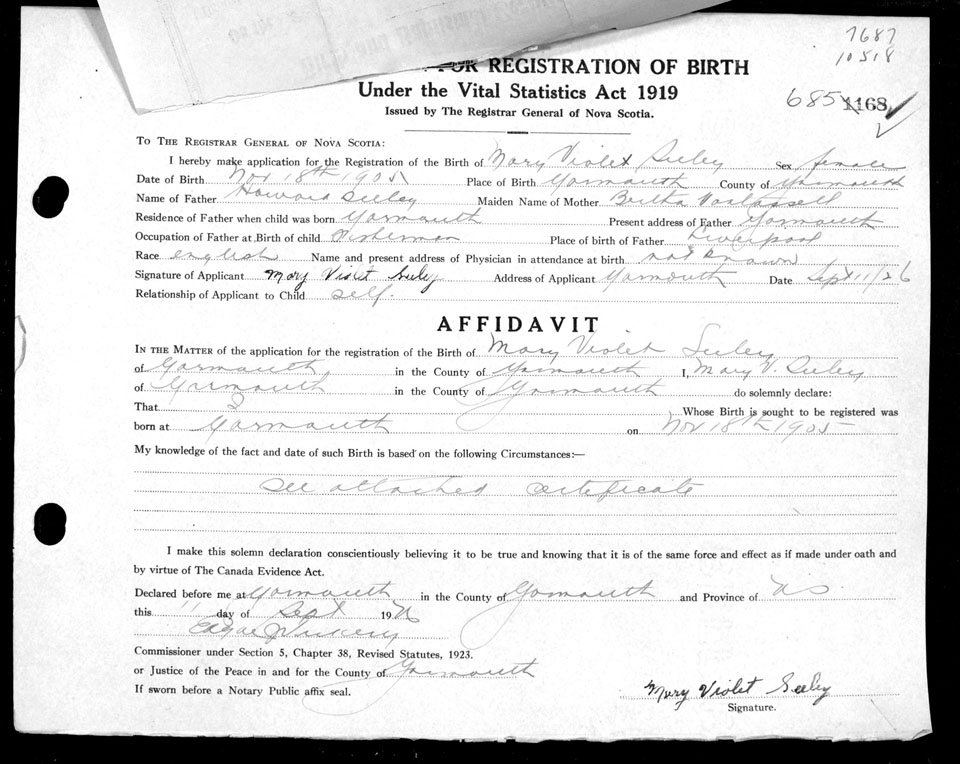 7687
10518
FOR REGISTRATION OF BIRTH
Under the Vital Statistics Act 1919
Issued by The Registrar General of Nova Scotia.
685 1168
TO THE REGISTRAR GENERAL OF NOVA SCOTIA:
I hereby make application for the Registration of the Birth of Mary Violet Seeley Sex female
Date of Birth Nov 18th 1905 Place of Birth Yarmouth County of Yarmouth
Name of Father Howard Seeley Maiden Name of Mother Bertha
Residence of Father when child was born Yarmouth Present address of Father Yarmouth
Occupation of Father at Birth of child Fisherman Place of birth of Father Liverpool
Race english Name and present address of Physician in attendance at birth not known
Signature of Applicant Mary Violet Seeley Address of Applicant Yarmouth Date Sept 11/26
Relationship of Applicant to Child self.
AFFIDAVIT
IN THE MATTER of the application for the registration of the Birth of Mary Violet Seeley
of Yarmouth in the County of Yarmouth I, Mary V. Seeley
of Yarmouth in the County of Yarmouth do solemnly declare:
That I Whose Birth is sought to be registered was
born at Yarmouth on Nov 18th 1905
My knowledge of the fact and date of such Birth is based on the following Circumstances:—
See attached certificate
I make this solemn declaration conscientiously believing it to be true and knowing that it is of the same force and effect as if made under oath and
by virtue of The Canada Evidence Act.
Declared before me at Yarmouth in the County of Yarmouth and Province of NS
this 11 day of Sept 1926
Commissioner under Section 5, Chapter 38, Revised Statutes, 1923.
or Justice of the Peace in and for the County of Yarmouth
If sworn before a Notary Public affix seal.
Mary Violet Seeley
Signature.